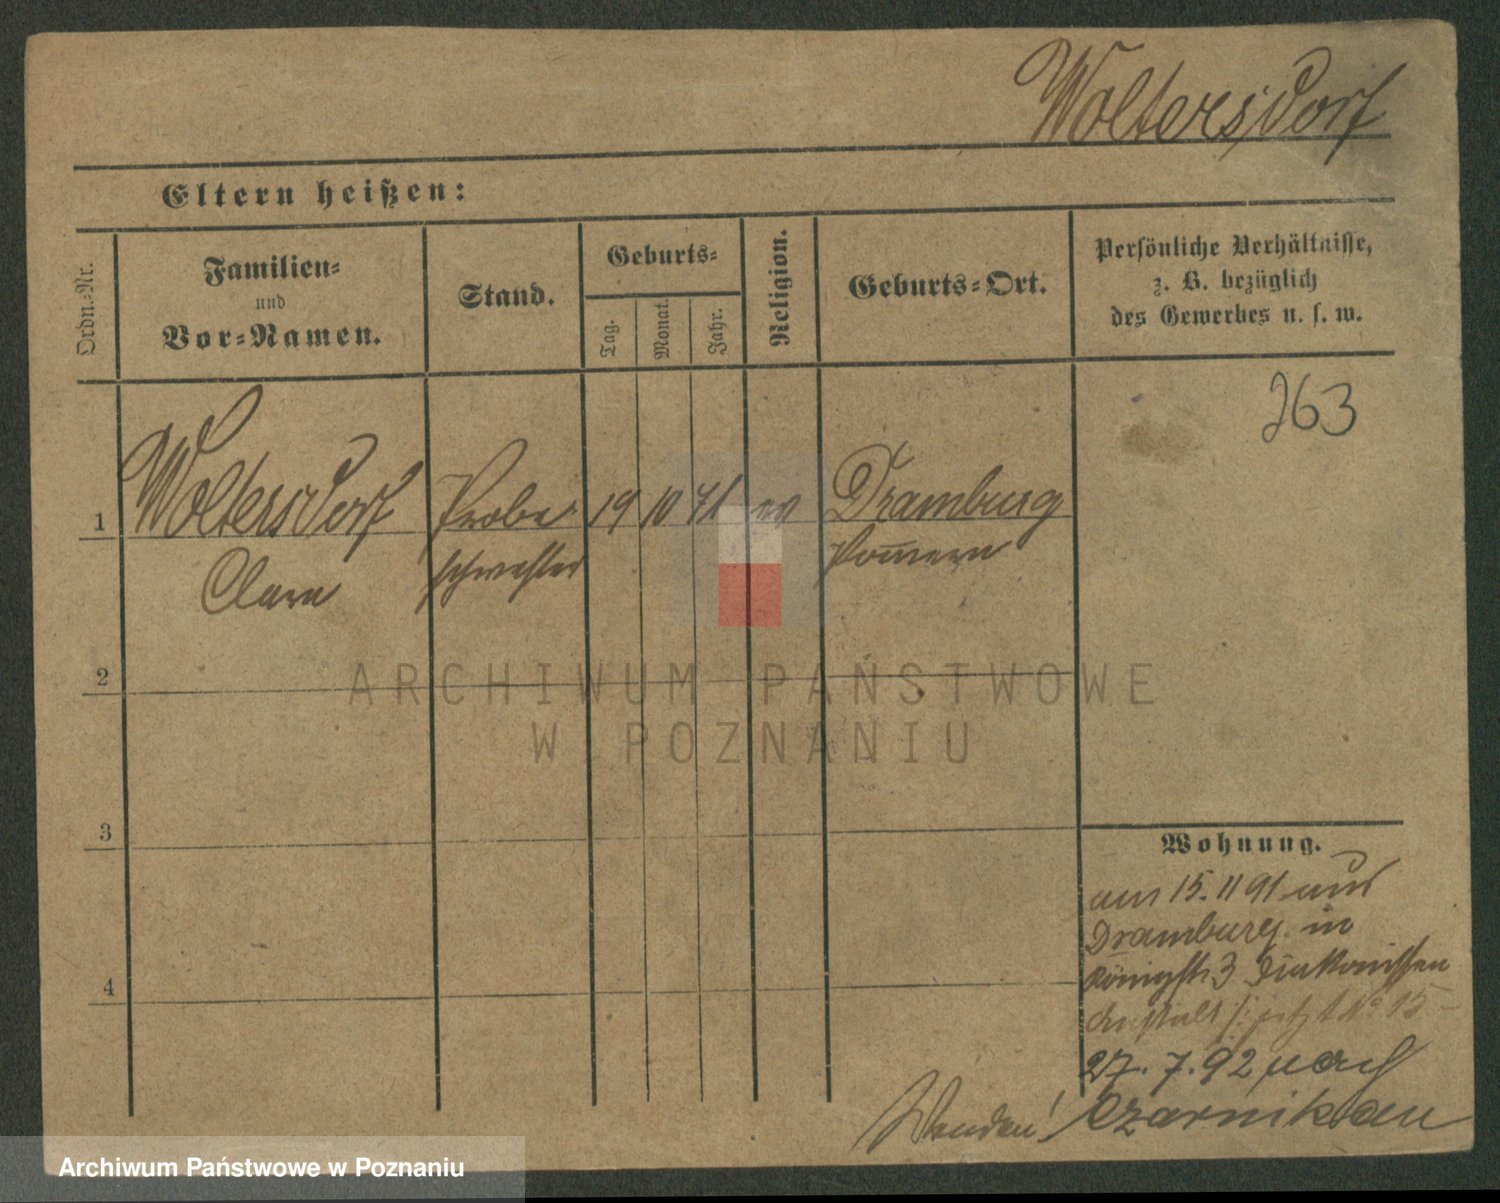 Woltersdorf
Eltern heißen:
Ordn.=Nr.
Familien=
und
Vor=Namen.
Stand.
Geburts=
Tag.
Monat.
Jahr.
Religion.
Geburts=Ort.
Persönliche Verhältnisse,
z. B. bezüglich
des Gewerbes u. s. w.
263
1 Woltersdorf Probe 19 10 71 ev Dramburg
Clara schwester Pommern
2
ARCHIWUM PAŃSTWOWE
W POZNANIU
3
4
Wohnung.
am 15. 11 91 aus
Dramburg in
Königstr 3 Diakonissen
Anstalt /: jetzt No 15-
27. 7. 92 nach
Czarnikau
Wenden!
Archiwum Państwowe w Poznaniu